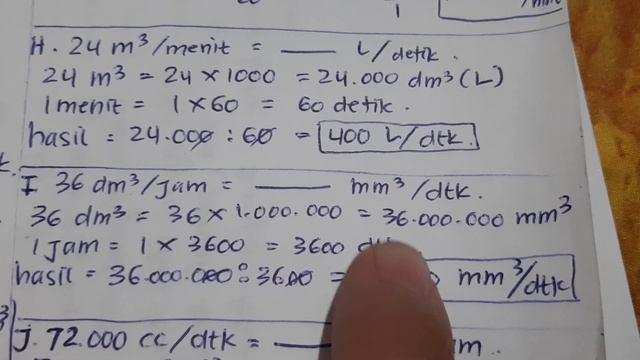 H. 24 m³/menit = ___ L/detik.
24 m³ = 24 × 1000 = 24.000 dm³ (L)
1 menit = 1 × 60 = 60 detik.
hasil = 24.000 : 60 = 400 L/dtk.
I 36 dm³/jam = ___ mm³/dtk.
36 dm³ = 36 × 1.000.000 = 36.000.000 mm³
1 jam = 1 × 3600 = 3600
hasil = 36.000.000 : 3600 = mm³/dtk
J. 72.000 cc/dtk = ___